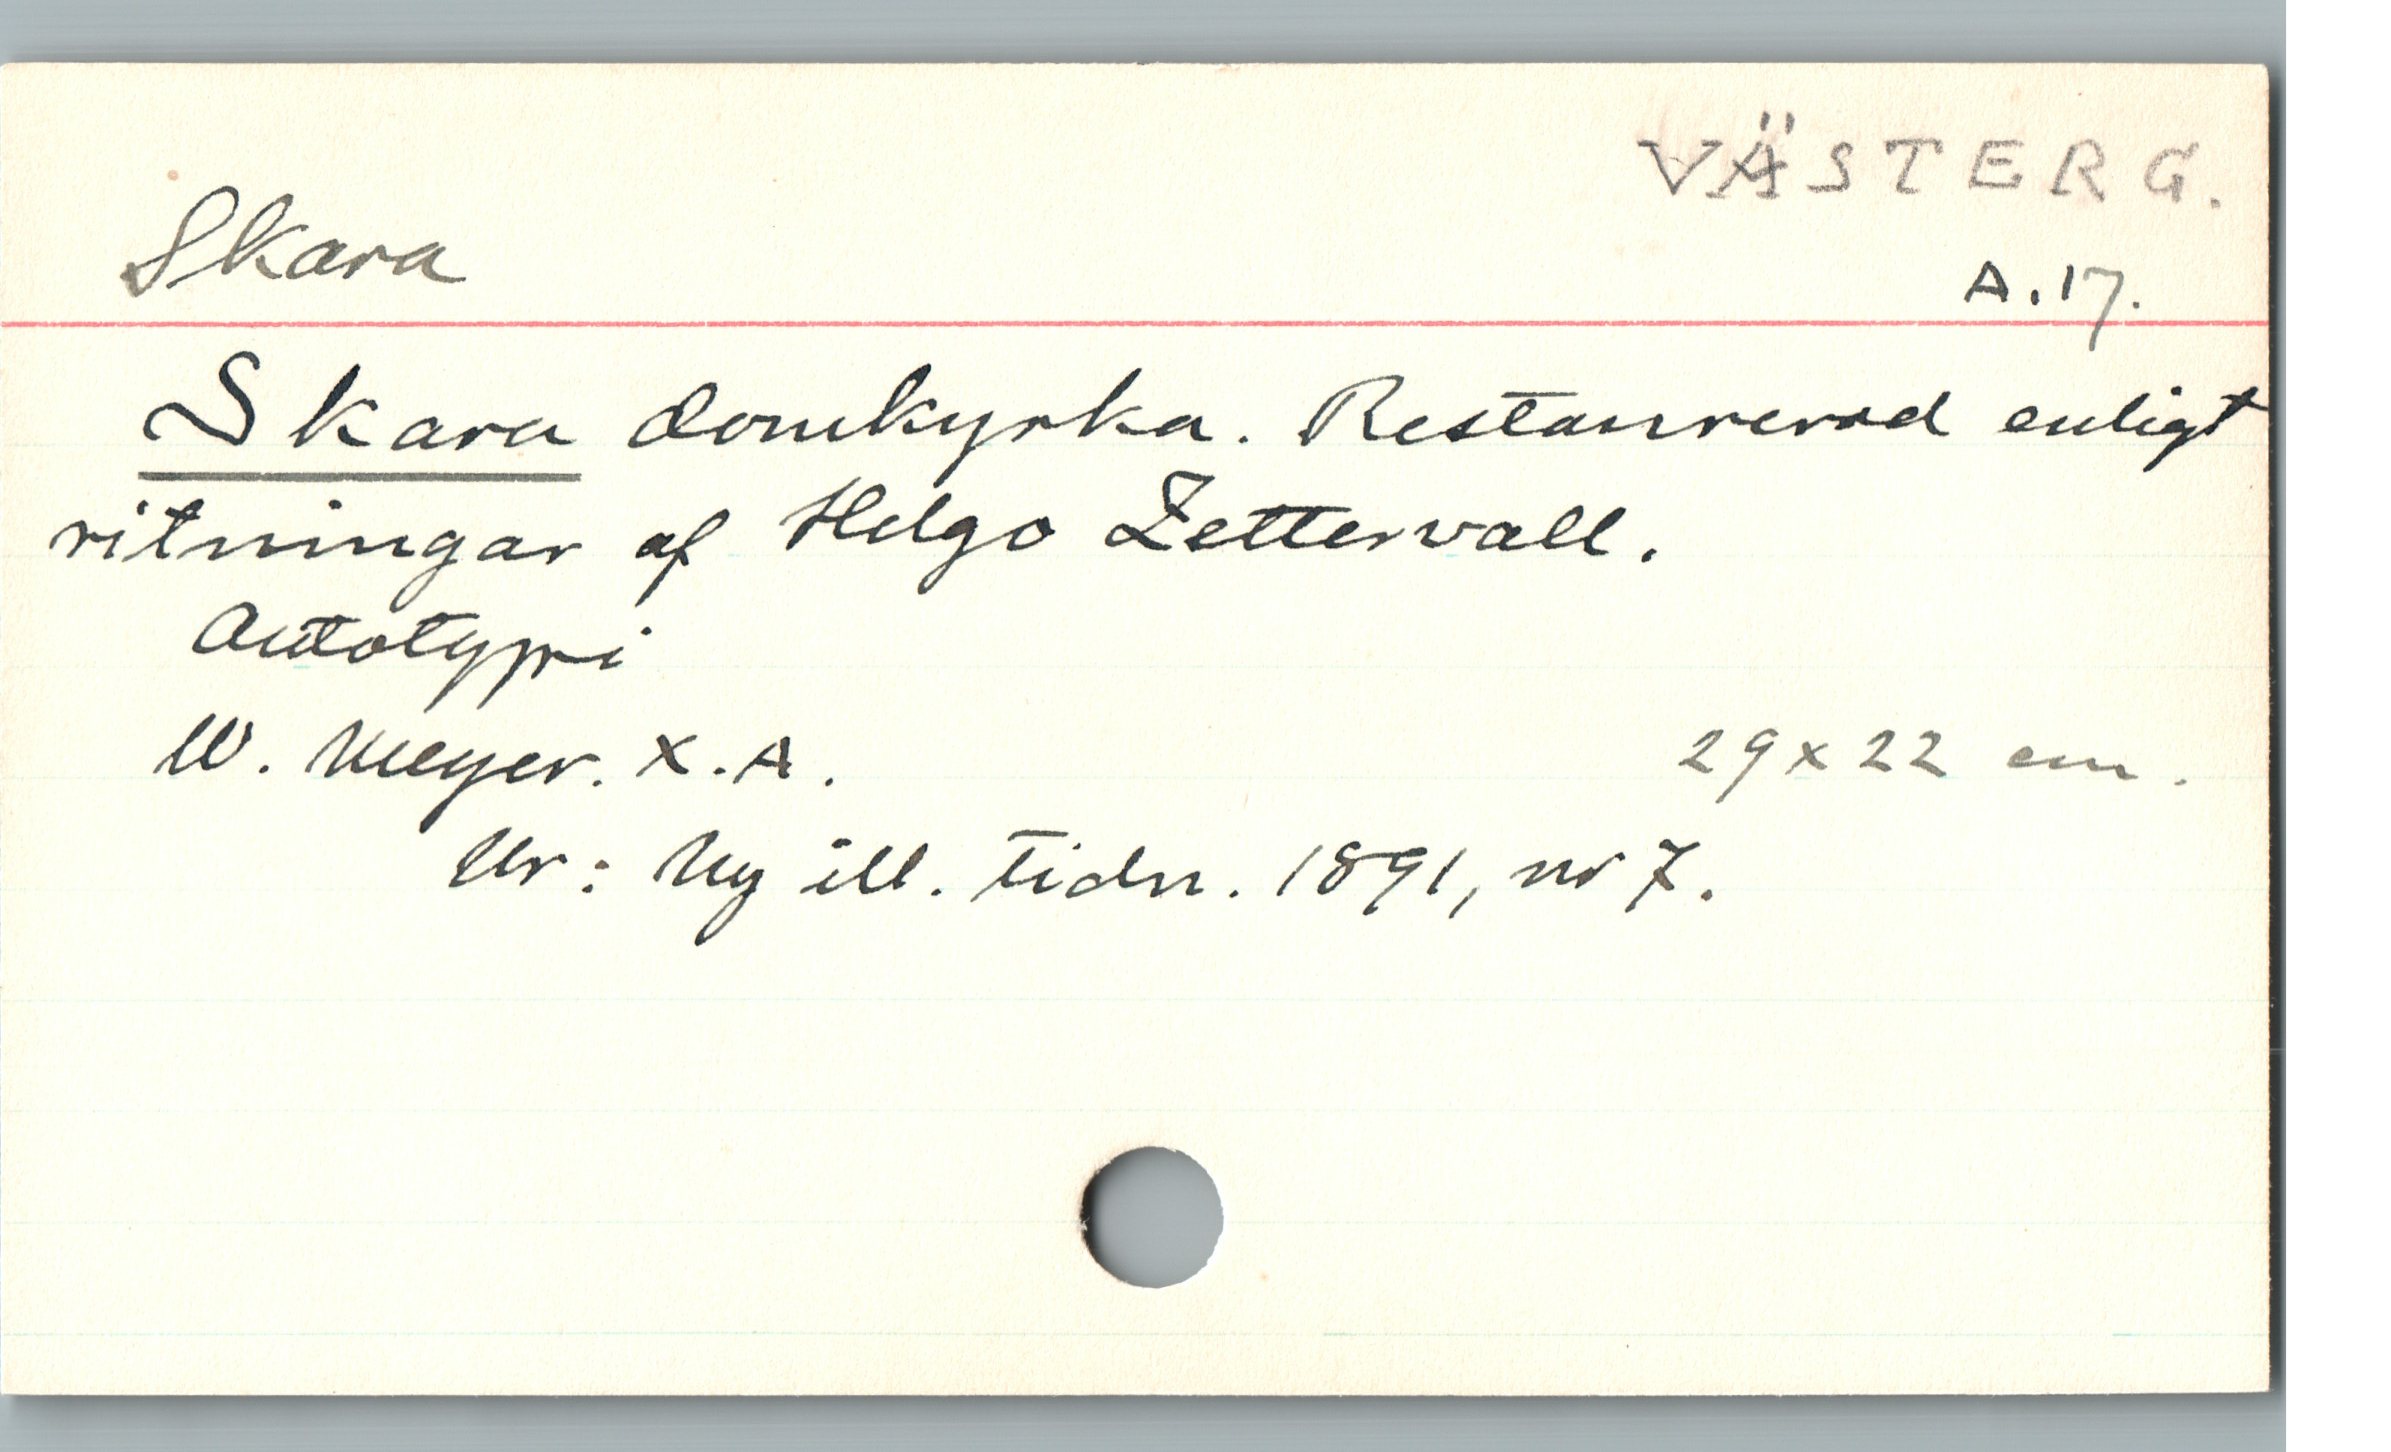 VÄSTERG.
Skara
A.17.
Skara domkyrka. Restaurerad enligt
ritningar af Helgo Zettervall.
Autotypi
W. Meyer. X.A.
29x22 cm.
Ur: Ny ill. tidn. 1891, nr 7.